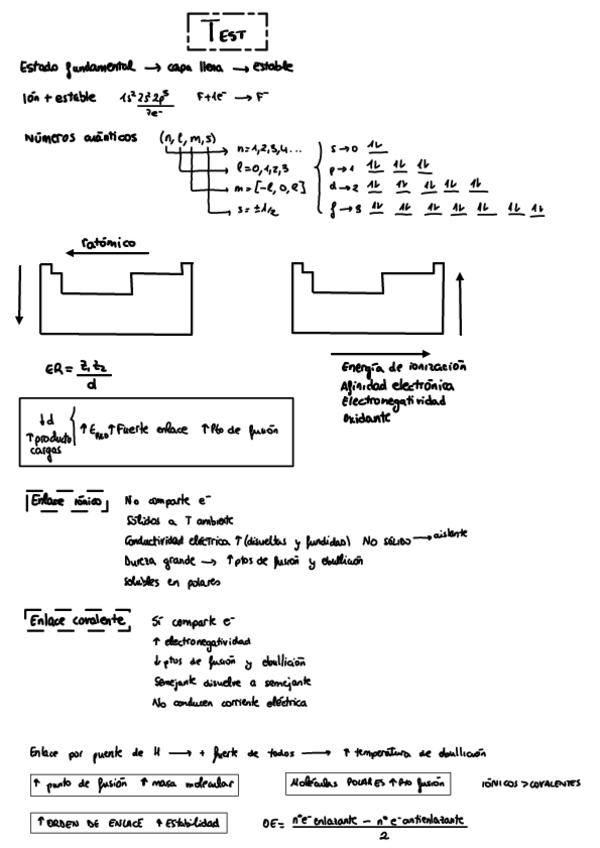 TEST
Estado fundamental → capa llena → estable
Ión + estable 1s² 2s² 2p⁵ F + 1e⁻ → F⁻
7e⁻
Números cuánticos (n, l, m, s)
n = 1, 2, 3, 4...
l = 0, 1, 2, 3
m = [-l, 0, l]
s = ±1/2
s → 0 1L
p → 1 1L 1L 1L
d → 2 1L 1L 1L 1L 1L
f → 3 1L 1L 1L 1L 1L 1L 1L
r atómico
Energía de ionización
Afinidad electrónica
Electronegatividad
Oxidante
ER = z₁ z₂
d
↓d
↑ producto
cargas
↑ E ↑ Fuerte enlace ↑ Pto de fusión
Enlace iónico
No comparte e⁻
Sólidos a T ambiente
Conductividad eléctrica ↑ (disueltas y fundidas) NO SÓLIDO → aislante
Dureza grande → ↑ ptos de fusión y ebullición
Solubles en polares
Enlace covalente
Sí comparte e⁻
↑ electronegatividad
↓ ptos de fusión y ebullición
Semejante disuelve a semejante
No conducen corriente eléctrica
Enlace por puente de H → + fuerte de todos → ↑ temperatura de ebullición
↑ punto de fusión ↑ masa molecular
Moléculas POLARES ↑ Pto fusión
IÓNICOS > COVALENTES
↑ ORDEN DE ENLACE ↑ Estabilidad
OE = nº e⁻ enlazante − nº e⁻ antienlazante
2